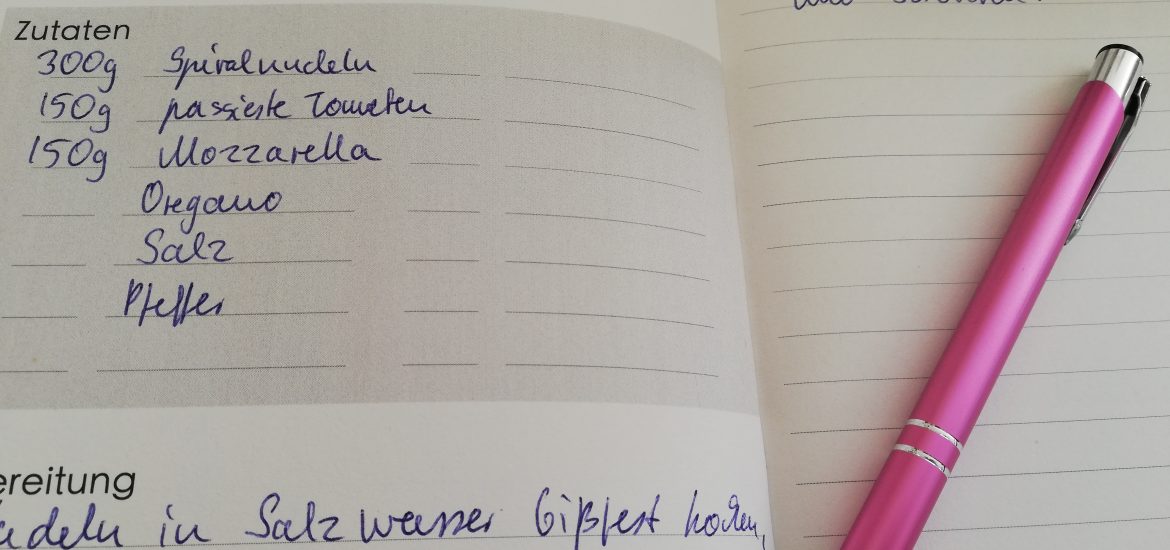 Zutaten
300g Spiralnudeln
150g passierte Tomaten
150g Mozzarella
Oregano
Salz
Pfeffer
ereitung
udeln in Salzwasser bißfest kochen,